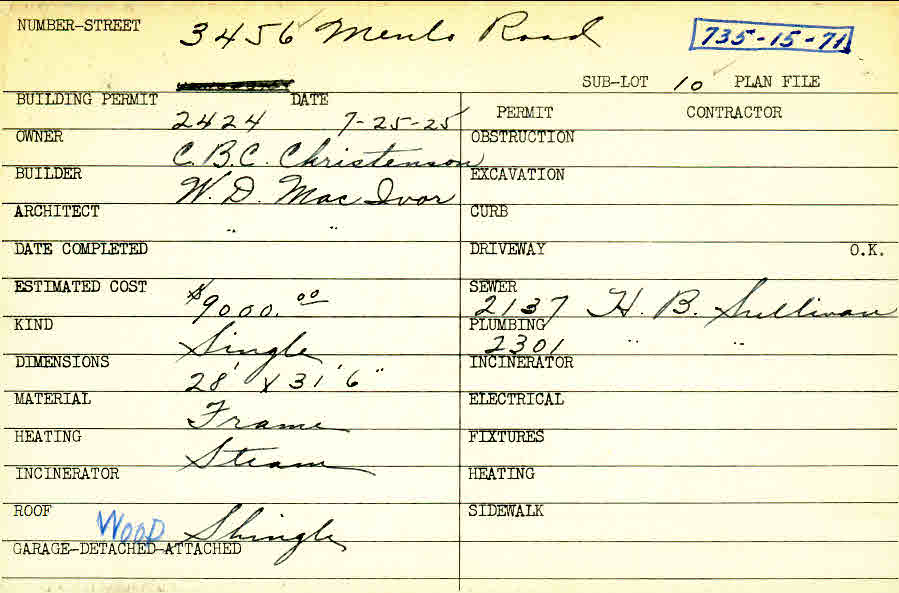 NUMBER-STREET 3456 Menlo Road 735-15-71
SUB-LOT 10 PLAN FILE
BUILDING PERMIT DATE PERMIT CONTRACTOR
2424 7-25-25
OWNER C.B.C. Christenson OBSTRUCTION
BUILDER W. D. Mac Ivor EXCAVATION
ARCHITECT " " CURB
DATE COMPLETED DRIVEWAY O.K.
ESTIMATED COST $9000.00 SEWER 2137 H. B. Sullivan
KIND Single PLUMBING 2301 " "
DIMENSIONS 28' X 31' 6" INCINERATOR
MATERIAL Frame ELECTRICAL
HEATING Steam FIXTURES
INCINERATOR HEATING
ROOF WOOD Shingle SIDEWALK
GARAGE-DETACHED-ATTACHED